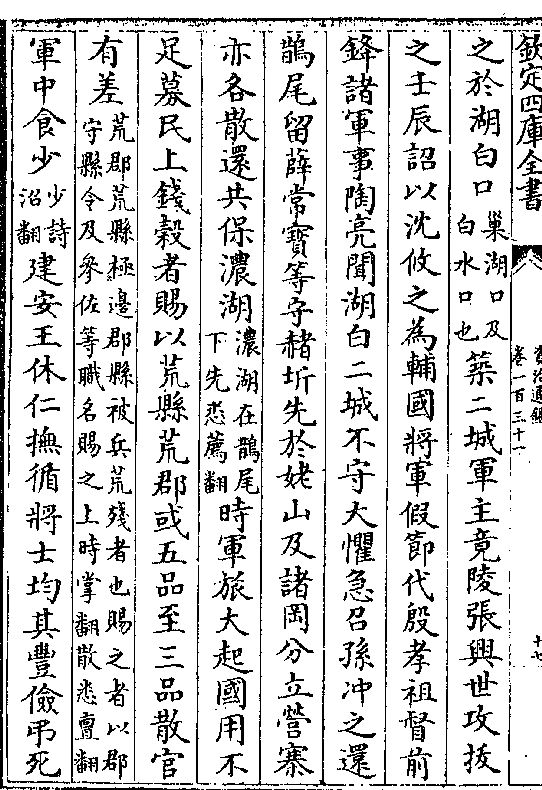 欽定四庫全書
資治通鑑
卷一百三十一
之於湖白口巢湖口及白水口也築二城軍主竟陵張興世攻拔
之壬辰詔以沈攸之為輔國將軍假節代殷孝祖督前
鋒諸軍事陶亮聞湖白二城不守大懼急召孫冲之還
鵲尾留薛常寶等守赭圻先於姥山及諸岡分立營寨
亦各散還共保濃湖濃湖在鵲尾下先悉薦翻時軍旅大起國用不
足募民上錢穀者賜以荒縣荒郡或五品至三品散官
有差荒郡荒縣極邊郡縣被兵荒殘者也賜之者以郡守縣令及參佐等職名賜之上時掌翻散悉亶翻
軍中食少少詩沼翻建安王休仁撫循將士均其豐儉弔死